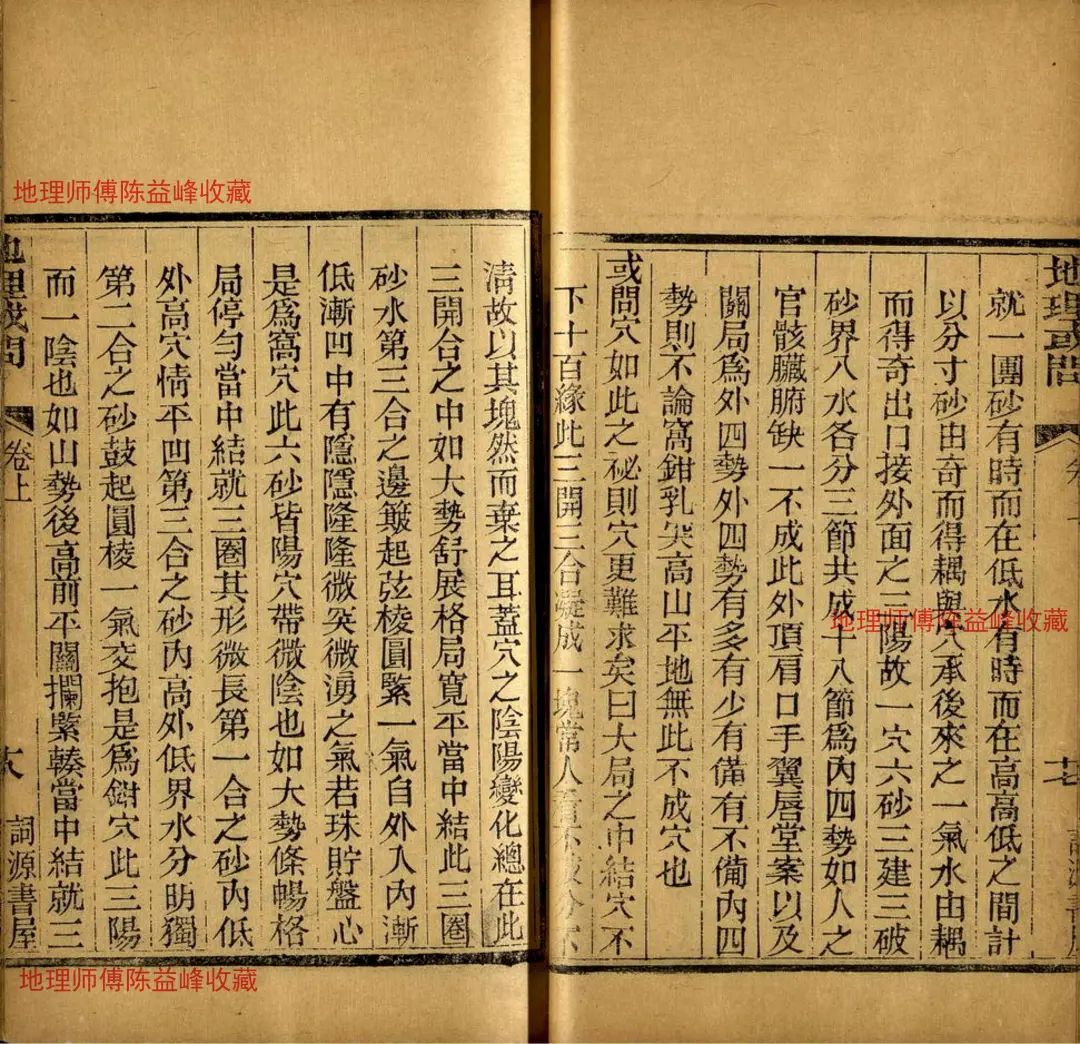 地理或問
就一團砂有時而在低水有時而在高高低之間計
以分寸砂由奇而得耦與穴承後來之一氣水由耦
而得奇出口接外面之三陽故一穴六砂三建三破
砂界八水各分三節共成十八節為內四勢如人之
官骸臟腑缺一不成此外頂肩口手翼唇堂案以及
關局為外四勢外四勢有多有少有備有不備內四
勢則不論窩鉗乳突高山平地無此不成穴也
或問穴如此之祕則穴更難求矣曰大局之中結穴不
下十百緣此三開三合凝成一塊常人看不
清故以其塊然而棄之耳蓋穴之陰陽變化總在此
三開合之中如大勢舒展格局寬平當中結此三圈
砂水第三合之邊簸起弦棱圓緊一氣自外入內漸
低漸凹中有隱隱隆隆微突微湧之氣若珠貯盤心
是為窩穴此六砂皆陽穴帶微陰也如大勢條暢格
局停勻當中結就三圈其形微長第一合之砂內低
外高穴情平凹第三合之砂內高外低界水分明獨
第二合之砂鼓起圓棱一氣交抱是為鉗穴此三陽
而一陰也如山勢後高前平關攔緊輳當中結就三
地理或問
卷上
詞源書屋
地理师傅陈益峰收藏
地理师傅陈益峰收藏
地理师傅陈益峰收藏